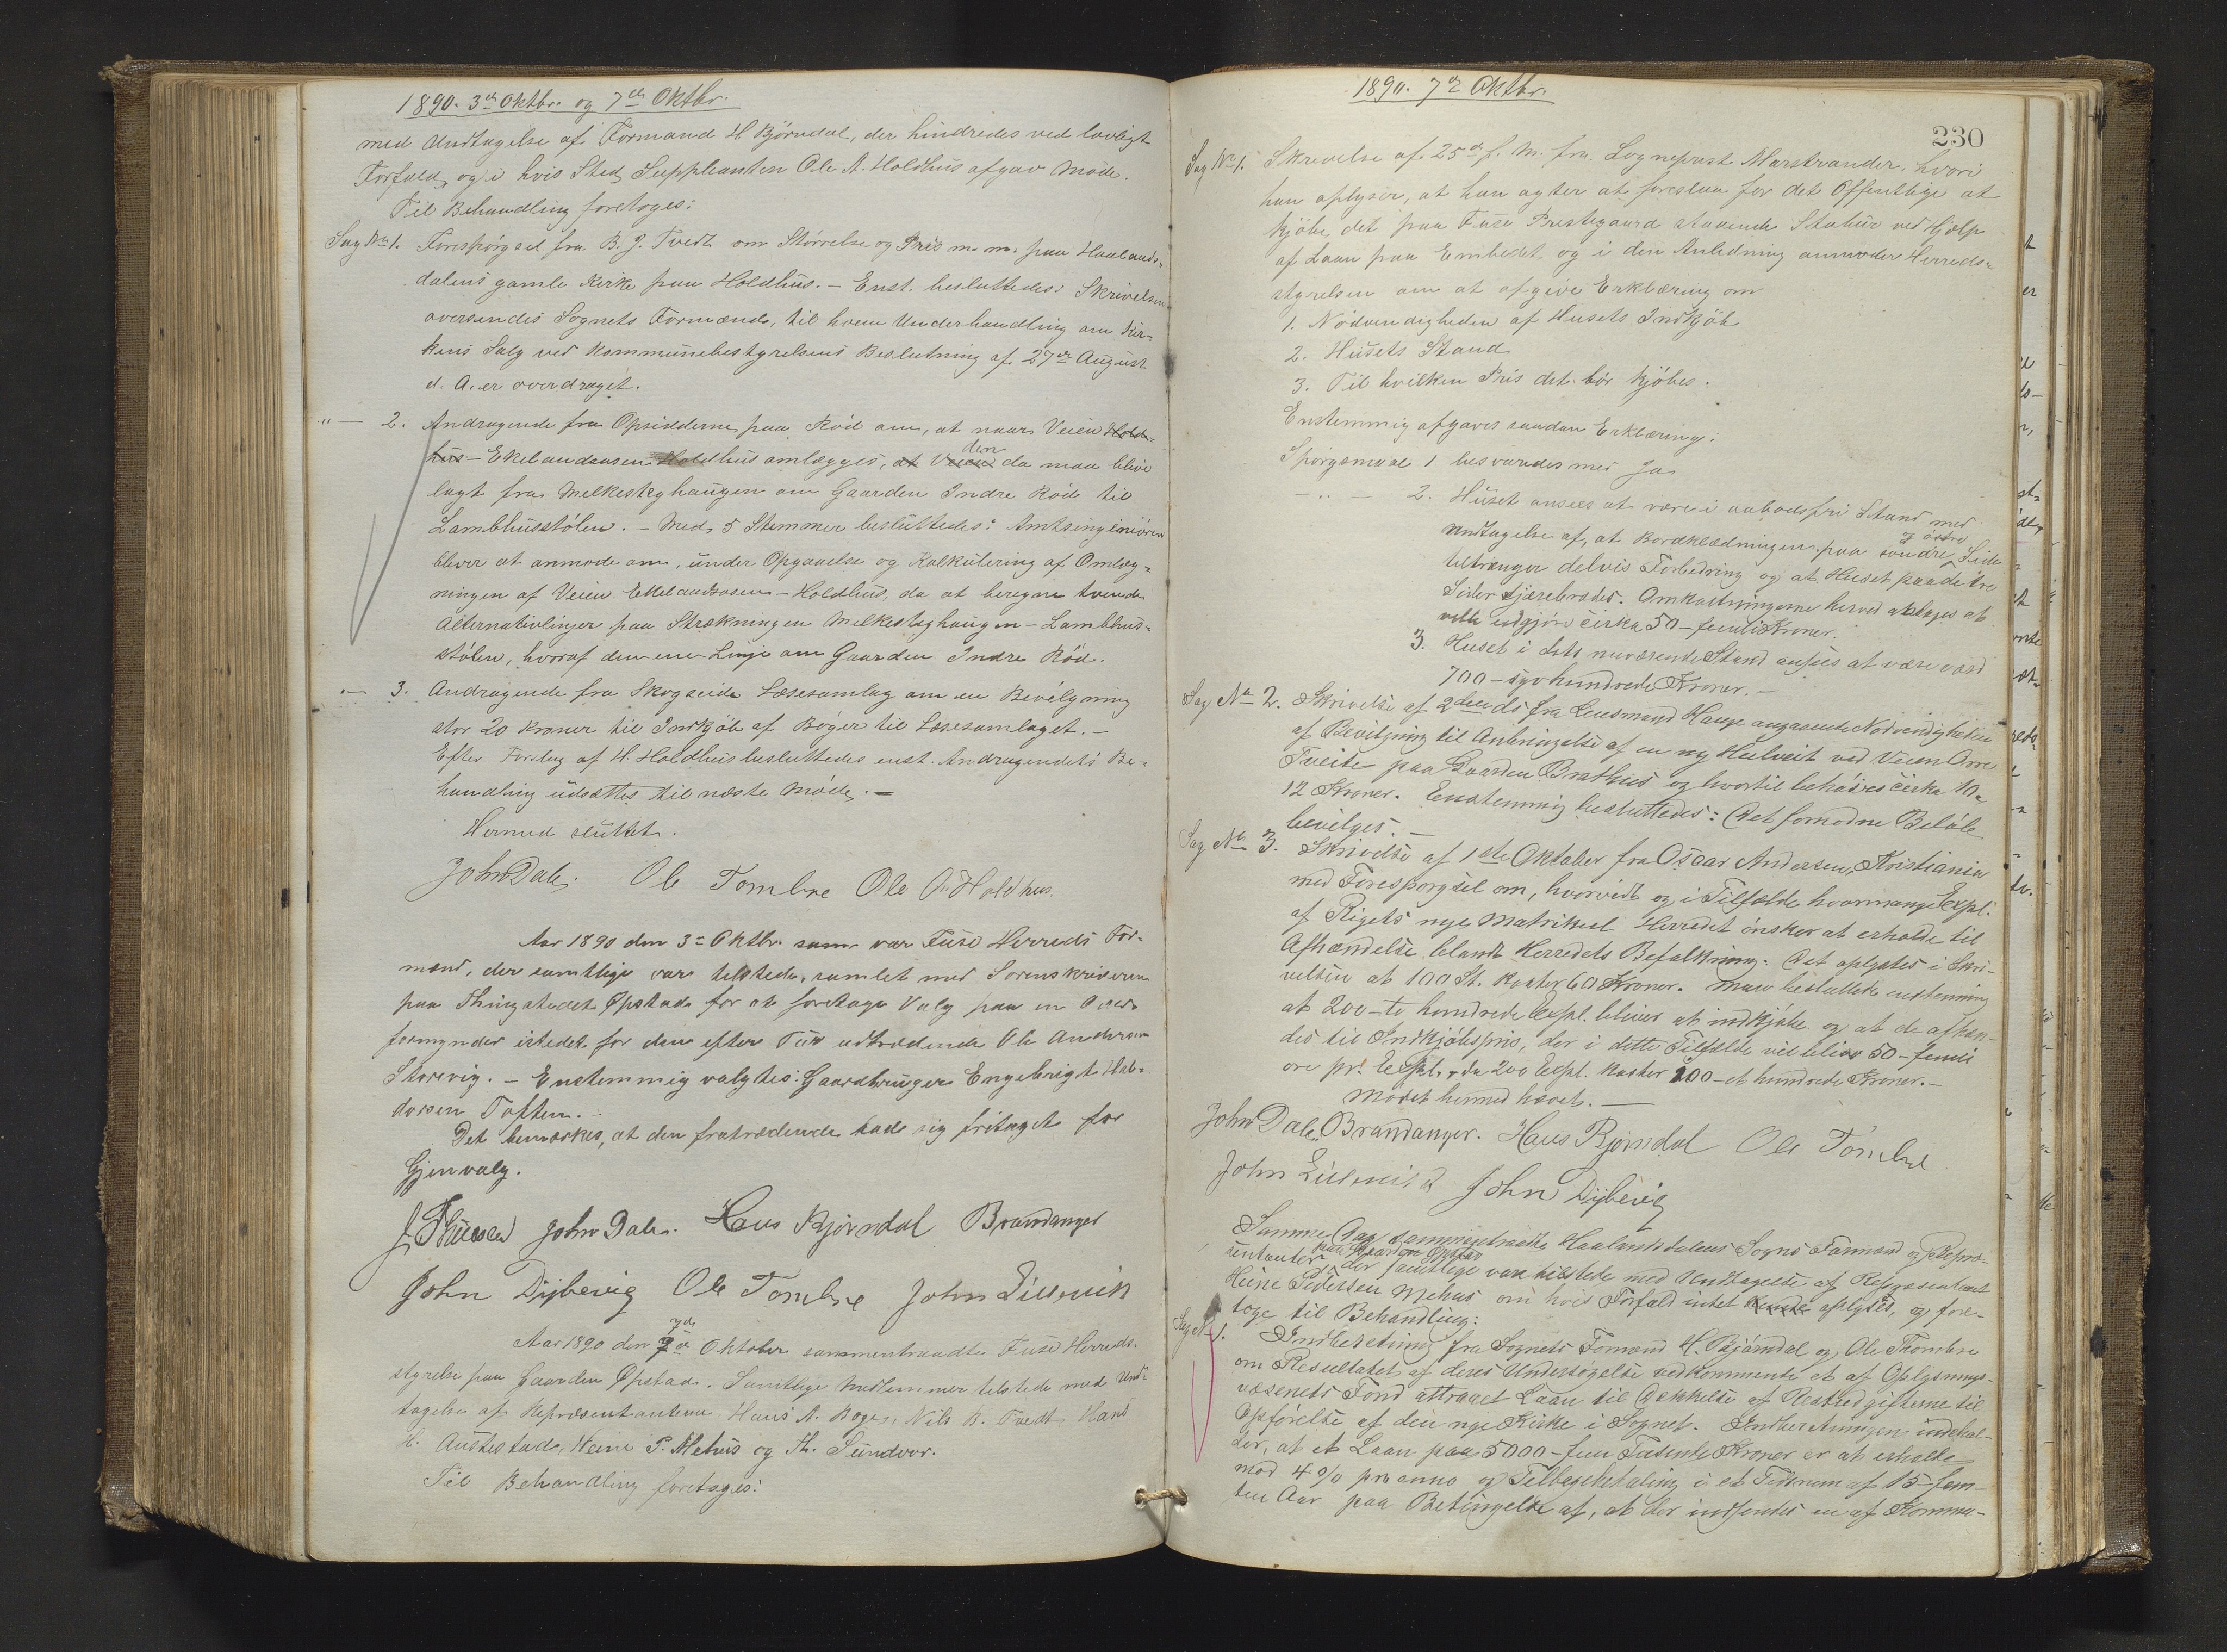 1890. 3die Oktbr. og 7de Oktbr.
med Undtagelse af Formand H. Bjørndal, der hindredes ved lovligt
Forfald, og i hvis Sted Suppleanten Ole A. Holdhus afgav Møde.
Til Behandling foretoges:
Sag No 1. Forespørgsel fra B. J. Tvedt om Størrelse og Pris m. m. paa Haalands-
dalens gamle Kirke paa Holdhus. – Enst. besluttedes: Skrivelsen
oversendes Sognets Formænd, til hvem Underhandling om Kir-
kens Salg ved Kommunebestyrelsens Beslutning af 27de August
d. A. er overdraget.
" — 2. Andragende fra Opsidderne paa Rød om, at naar Veien Hold-
hus – Ekelandsosen Holdhus omlægges, at Veien den da maa blive
lagt fra Melkesteghaugen om Gaarden Indre Rød til
Lambhusstølen. – Med 5 Stemmer besluttedes: Amtsingeniøren
bliver at anmode om, under Opgaaelse og Kalkulering af Omlæg-
ningen af Veien Ekelandsosen – Holdhus, da at beregne tvende
Alternativlinjer paa Strækningen Melkesteghaugen – Lambhus-
stølen, hvoraf den ene Linje om Gaarden Indre Rød.
" — 3. Andragende fra Skogseide Læsesamlag om en Bevilgning
stor 20 Kroner til Indkjøb af Bøger til Læsesamlaget. –
Efter Forslag af H. Holdhus besluttedes enst. Andragendets Be-
handling udsættes til næste Møde. –
Hermed sluttet.
John Dale. Ole Tombre Ole A. Holdhus.
Aar 1890 den 3die Oktbr. sam var Fuse Herreds For-
mænd, der samtlige vare tilstede, samlet med Sorenskriveren
paa Thingstedet Opstad for at foretage Valg paa en Over-
formynder istedet for den efter Tur udtrædende Ole Andersen
Storevig. – Enstemmig valgtes: Gaardbruger Engebrigt Hal-
dorsen Toften.
Det bemærkes, at den fratrædende bad sig fritaget for
Gjenvalg.
John Dale. Hans Bjørndal Brandanger
John Dybevig Ole Tombre John Lilleviik
Aar 1890 den 7de 7de Oktober sammentraadte Fuse Herreds-
styrelse paa Gaarden Opstad. Samtlige Medlemmer tilstede med Und-
tagelse af Repræsentanterne Hans A. Boge, Nils B. Tvedt, Hans
H. Austestad, Heine P. Mehus og Th. Sundvor.
Til Behandling foretoges:
1890. 7de Oktbr.
230
Sag No 1. Skrivelse af 25de f. M. fra Sogneprest Marstrander, hvori
han oplyser, at han agter at foreslaa for det Offentlige at
kjøbe det paa Fuse Prestegaard staaende Stabur ved Hjælp
af Laan paa Embedet, og i den Anledning anmoder Herreds-
styrelsen om at afgive Erklæring om
1. Nødvendigheden af Husets Indkjøb
2. Husets Stand
3. Til hvilken Pris det bør kjøbes.
Enstemmig afgaves saadan Erklæring:
Spørgsmaal 1 besvaredes med Ja
— " — 2. Huset ansees at være i aabodsfri Stand med
Undtagelse af, at Bordklædningen paa søndre og østre Side
tiltrænger delvis Forbedring og at Huset paa de tre
Sider tjærebredes. Omkostningerne herved antages at
ville udgjøre cirka 50 – femti Kroner.
3. Huset i dets nuværende Stand ansees at være værd
700 – syv hundrede Kroner. –
Sag No 2. Skrivelse af 2den ds fra Lensmand Hauge angaaende Nødvendigheden
af Bevilgning til Anbringelse af en ny Hulveit ved Veien Ovre
Tveite paa Gaarden Brathus og hvortil behøves cirka 10 a
12 Kroner. Enstemmig besluttedes: Det fornødne Beløb
bevilges. –
Sag No 3. Skrivelse af 1ste Oktober fra Oscar Andersen, Kristiania
med Forespørgsel om, hvorvidt og i Tilfælde hvormange Expl.
af Rigets nye Matrikul Herredet ønsker at erholde til
Afhændelse blandt Herredets Befolkning. Det oplystes i Skri-
velsen at 100 St. koster 60 Kroner. Man besluttede enstemmig
at 200 – to hundrede Expl. bliver at indkjøbe og at de afhæn-
des til Indkjøbspris, der i dette Tilfælde vil blive 50 – femti
øre pr. Expl., da 200 Expl. koster 100 – et hundrede Kroner. –
Mødet hermed hævet. –
John Dale. Brandanger. Hans Bjørndal Ole Tombre
John Lilleviik John Dybevig
Samme Dag sammentraadte Haalandsdalens Sogns Formænd og Repræ-
sentanter paa Gaarden Opstad, der samtlige vare tilstede med Undtagelse af Repræsentant
Heine Pedersen Mehus om hvis Forfald intet kunde oplystes, og fore-
toge til Behandling:
Sag No 1. Indberetning fra Sognets Formænd H. Bjørndal og Ole Thombre
om Resultatet af deres Undersøgelse vedkommende et af Oplysnings-
væsenets Fond attraaet Laan til Dækkelse af Restudgifterne til
Opførelse af den nye Kirke i Sognet. Indberetningen indehol-
der, at et Laan paa 5000 – fem Tusende Kroner er at erholde
mod 4 % pro anno og Tilbagebetaling i et Tidsrum af 15 – fem-
ten Aar paa Betingelse af, at der indsendes en af Kommu-